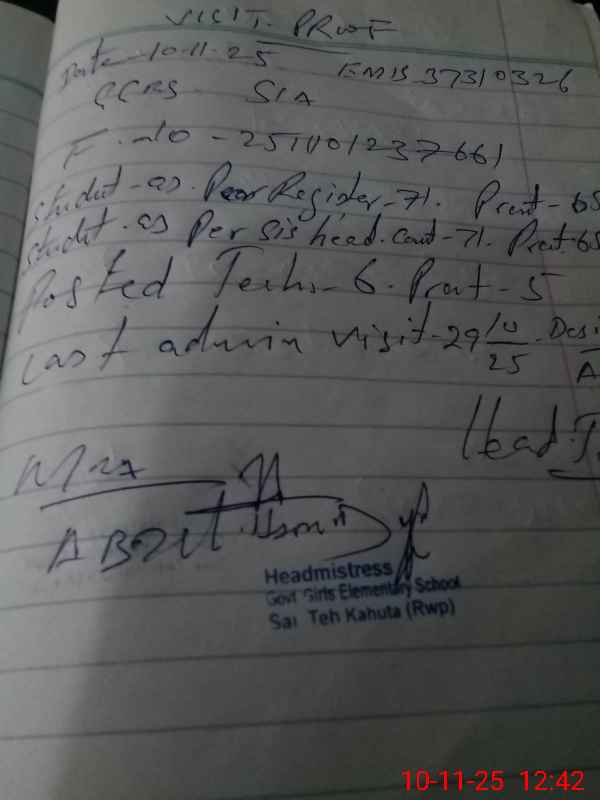 VISIT PROOF
Date - 10-11-25 EMIS 37310326
SIA
F. No - 2511101237661
Student - as Per Register - 71. Presnt - 65
Studet. as Per Sis head. Cout - 71. Presnt 65
Posted Techs - 6. Prent - 5
Last admin visit - 29/10/25. Desi
A
Head. T
MEA
ABDUL
Headmistress
Govt Girls Elementary School
Sai Teh Kahuta (Rwp)
10-11-25 12:42